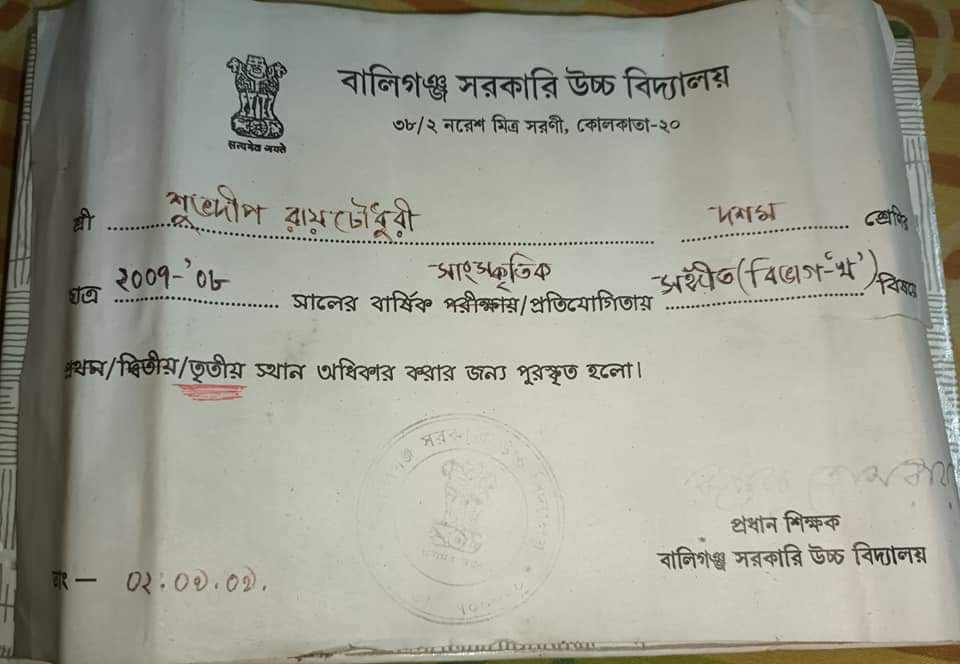 सत्यमेव जयते
বালিগঞ্জ সরকারি উচ্চ বিদ্যালয়
৩৮/২ নরেশ মিত্র সরণী, কোলকাতা-২০
শ্রী শুভদীপ রায়চৌধুরী দশম শ্রেণির
ছাত্র ২০০৭-'০৮ সালের বার্ষিক পরীক্ষায়/প্রতিযোগিতায় সাংস্কৃতিক সঙ্গীত (বিভাগ-'খ') বিষয়ে
প্রথম/দ্বিতীয়/তৃতীয় স্থান অধিকার করার জন্য পুরস্কৃত হলো।
প্রধান শিক্ষক
বালিগঞ্জ সরকারি উচ্চ বিদ্যালয়
তাং —